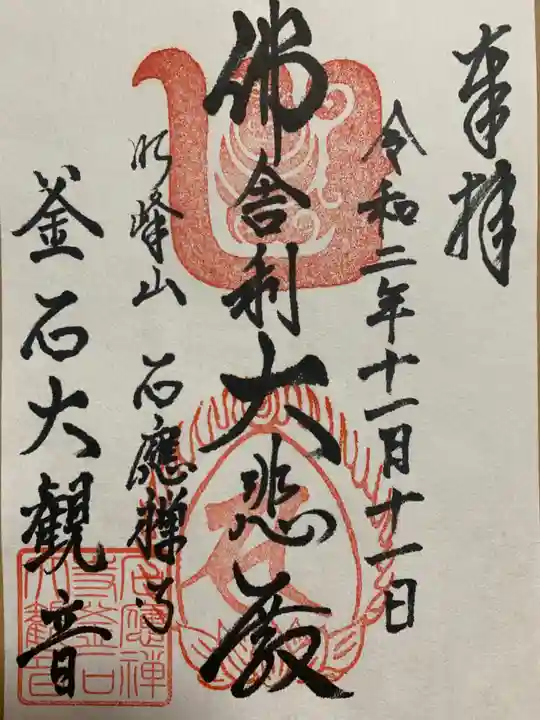 奉拝
令和二年十一月十一日
佛舎利大悲殿
明峰山 石應禅寺
釜石大観音